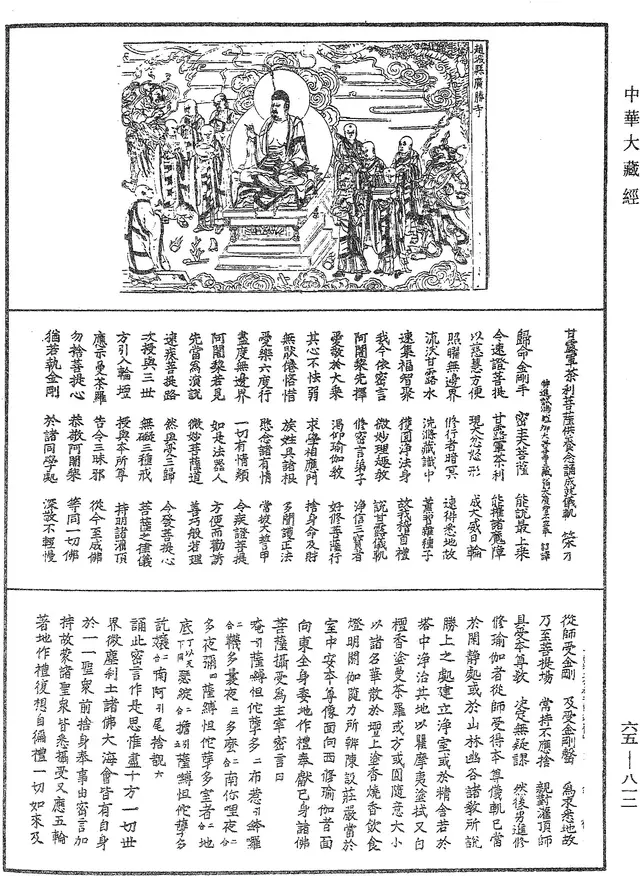 中華大藏經
六五—八一二
趙城縣廣勝寺
甘露軍荼利菩薩供養念誦成就儀軌
特進試鴻臚卿大興善寺三藏沙門大廣智不空奉 詔譯
歸命金剛手 密主大菩薩 能説最上乘
令速證菩提 甘露軍荼利 能摧諸魔障
以慈慧方便 現大忿怒形 成大威日輪
照曜無邊界 修行者暗冥 速得悉地故
流沃甘露水 洗滌藏識中 薰習雜種子
速集福智聚 獲圓淨法身 故我稽首禮
我今依密言 微妙理趣教 説甘露儀軌
阿闍黎先擇 修密言弟子 淨信三寶者
愛敬於大乘 渴仰瑜伽教 好修菩薩行
其心不怯弱 求學相應門 捨身命及財
無猒倦悋惜 族姓具諸根 多聞護正法
愛樂六度行 愍念諸有情 常被大誓甲
盡度無邊界 一切有情類 令疾證菩提
阿闍黎若見 如是法器人 方便而勸誘
先當爲演説 微妙菩薩道 善巧般若理
速疾菩提路 然與受三歸 令發菩提心
次授與三世 無礙三種戒 菩薩之律儀
方引入輪壇 授與本所尊 持明諸灌頂
應示曼荼羅 告令三昧耶 從今至成佛
勿捨菩提心 恭敬阿闍黎 等同一切佛
猶若執金剛 於諸同學處 深敬不輕慢
從師受金剛 及受金剛磬 爲求悉地故
乃至菩提場 常持不應捨 親對灌頂師
具受本尊教 决定無疑謬 然後勇進修
修瑜伽者從師受得本尊儀軌已當
於閑靜處或於山林幽谷諸教所説
勝上之處建立淨室或於精舍若於
塔中淨治其地以瞿摩夷塗拭又白
檀香塗曼荼羅或方或圓隨意大小
以諸名華散於壇上塗香燒香飲食
燈明閼伽葭力所辦陳設莊嚴當於
室中安本尊像面向西修瑜伽者面
向東全身委地作禮奉獻己身諸佛
菩薩攝受爲主宰密言曰
唵引薩嚩怛佗孽多一布惹引鉢囉
二合韈多曩夜二多麽二合南你哩夜二合
多夜弭四薩嚩怛佗孽多室者二合地
底丁以反下同瑟綻二合擔五薩嚩怛佗孽多
訖孃二合南阿引尾捨覩六
誦此密言作是思惟盡十方一切世
界微塵刹土諸佛大海會皆有自身
於一一聖衆前捨身奉事由密言加
持故蒙諸聖衆皆悉攝受又應五輪
著地作禮復想自徧禮一切如來及